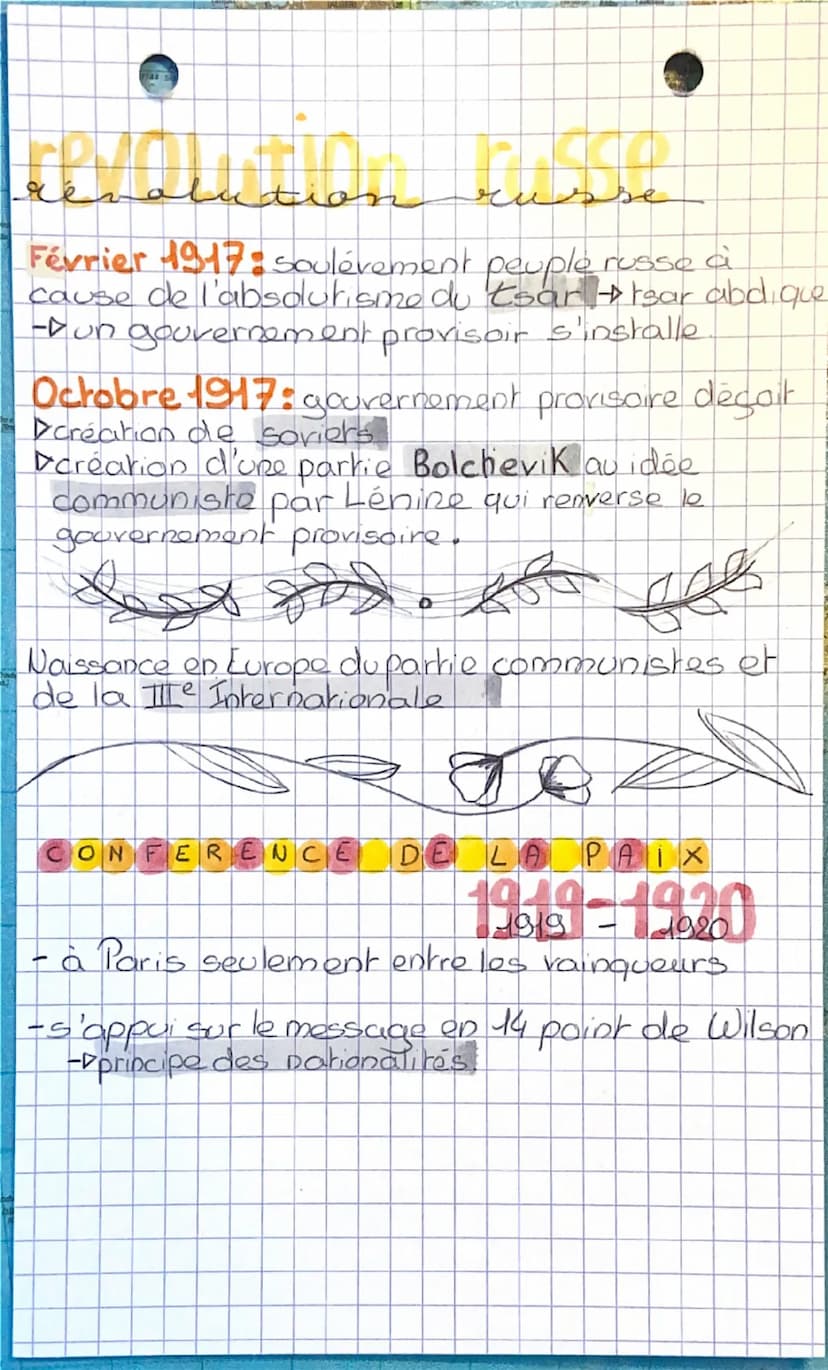 revolution russe
révolution russe
Février 1917: soulévement peuple russe à
cause de l'absolutisme du tsar → tsar abdique
→ un gouvernement provisoir s'installe.
Octobre 1917: gouvernement provisoire déçoit
▷création de soviets
▷création d'une partie Bolchevik au idée
communiste par Lénine qui renverse le
gouvernement provisoire.
Naissance en Europe du partie communistes et
de la IIIe Internationale
CONFERENCE DE LA PAiX
1919-1920
1919 - 1920
- à Paris seulement entre les vainqueurs
-s'appui sur le message en 14 point de Wilson
→principe des nationalités.